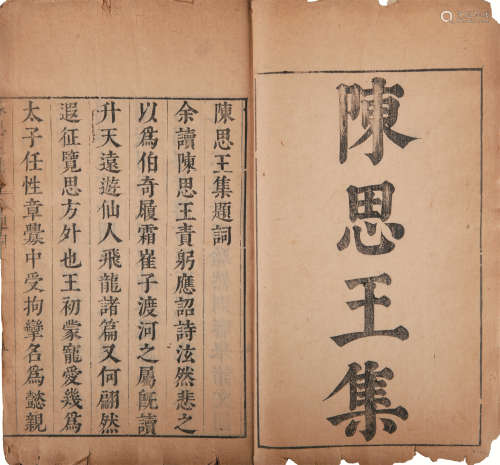 陳思王集
陳思王集題詞
余讀陳思王責躬應詔詩泫然悲之
以爲伯奇履霜崔子渡河之屬旣讀
升天遠遊仙人飛龍諸篇又何翩然
遐征覽思方外也王初蒙寵愛幾爲
太子任性章釁中受拘攣名爲懿親